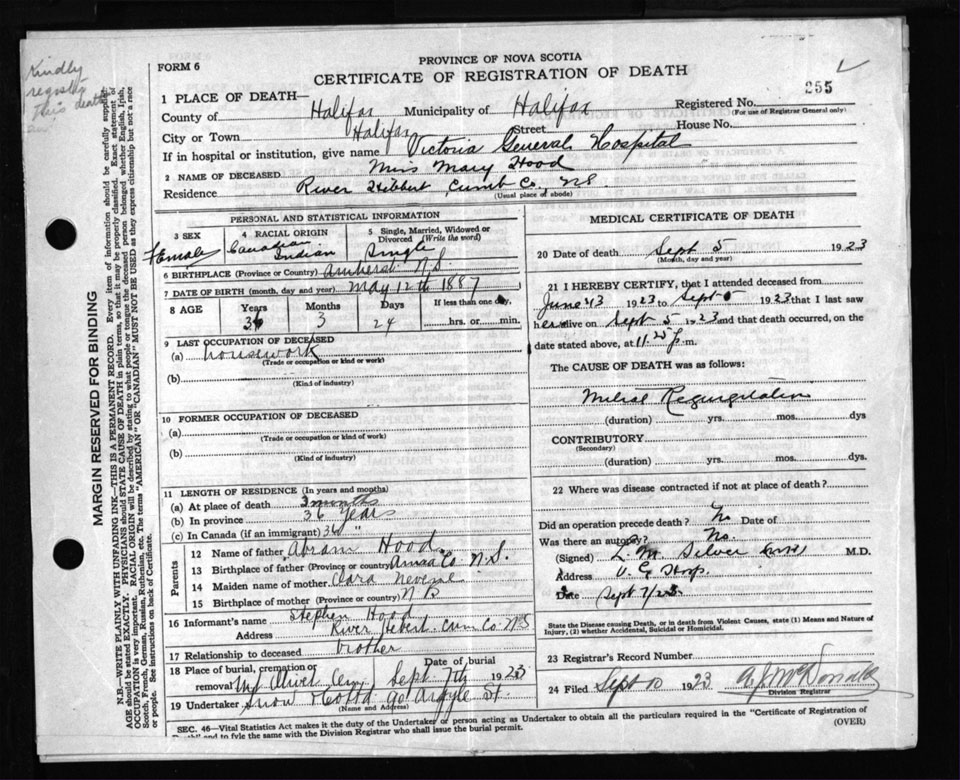 Kindly
register
this death
FORM 6
PROVINCE OF NOVA SCOTIA
CERTIFICATE OF REGISTRATION OF DEATH
255
1 PLACE OF DEATH—
County of Halifax Municipality of Halifax Registered No.
(For use of Registrar General only)
City or Town Halifax Street House No.
If in hospital or institution, give name Victoria General Hospital
2 NAME OF DECEASED Miss Mary Hood
Residence River Hebbert Cumb Co. NS.
(Usual place of abode)
PERSONAL AND STATISTICAL INFORMATION
3 SEX 4 RACIAL ORIGIN 5 Single, Married, Widowed or Divorced (Write the word)
Female Canadian Indian Single
6 BIRTHPLACE (Province or Country) Amherst N.S.
7 DATE OF BIRTH (month, day and year) May 12th 1887
8 AGE Years Months Days If less than one day,
36 3 24 hrs. or min.
9 LAST OCCUPATION OF DECEASED
(a) housework
(Trade or occupation or kind or work)
(b)
(Kind of industry)
10 FORMER OCCUPATION OF DECEASED
(a)
(Trade or occupation or kind of work)
(b)
(Kind of industry)
11 LENGTH OF RESIDENCE (In years and months)
(a) At place of death 3 months
(b) In province 36 Years
(c) In Canada (if an immigrant) 36 "
Parents
12 Name of father Abram Hood
13 Birthplace of father (Province or country) Co N.S.
14 Maiden name of mother Clara
15 Birthplace of mother (Province or country) N B
16 Informant's name Stephen Hood
Address River Hebert Cum Co NS
17 Relationship to deceased brother
18 Place of burial, cremation or removal Mt Olivet Cem Date of burial Sept 7th 1923
19 Undertaker Snow & Co Ltd 90 Argyle St.
(Name and Address)
MEDICAL CERTIFICATE OF DEATH
20 Date of death Sept 5 1923
(Month, day and year)
21 I HEREBY CERTIFY, that I attended deceased from
June 1923 to Sept 5 1923 that I last saw
her alive on Sept 5 1923 and that death occurred, on the
date stated above, at 11.25 p.m.
The CAUSE OF DEATH was as follows:
Mitral Regurgitation
(duration) yrs. mos. dys
CONTRIBUTORY
(Secondary)
(duration) yrs. mos. dys.
22 Where was disease contracted if not at place of death?
Did an operation precede death? No Date of
Was there an autopsy? No.
(Signed) L. M. Silver M.D.
Address V. G. Hosp.
Date Sept 7/23
State the Disease causing Death, or in death from Violent Causes, state (1) Means and Nature of
Injury, (2) whether Accidental, Suicidal or Homicidal.
23 Registrar's Record Number
24 Filed Sept 10 1923 McDonald
Division Registrar
SEC. 46—Vital Statistics Act makes it the duty of the Undertaker or person acting as Undertaker to obtain all the particulars required in the "Certificate of Registration of
Death" and to file the same with the Division Registrar who shall issue the burial permit. (OVER)
MARGIN RESERVED FOR BINDING
N.B.—WRITE PLAINLY WITH UNFADING INK—THIS IS A PERMANENT RECORD. Every item of information should be carefully supplied.
AGE should be stated EXACTLY. PHYSICIANS should STATE CAUSE OF DEATH in plain terms, so that it may be properly classified. Exact statement of
OCCUPATION is very important. RACIAL ORIGIN will be described by stating to what people or tongue the deceased person belonged whether English, Irish,
Scotch, French, German, Russian, Ruthenian, etc. The terms "AMERICAN" or "CANADIAN" MUST NOT BE USED as they express citizenship but not a race
or people. See instructions on back of Certificate.